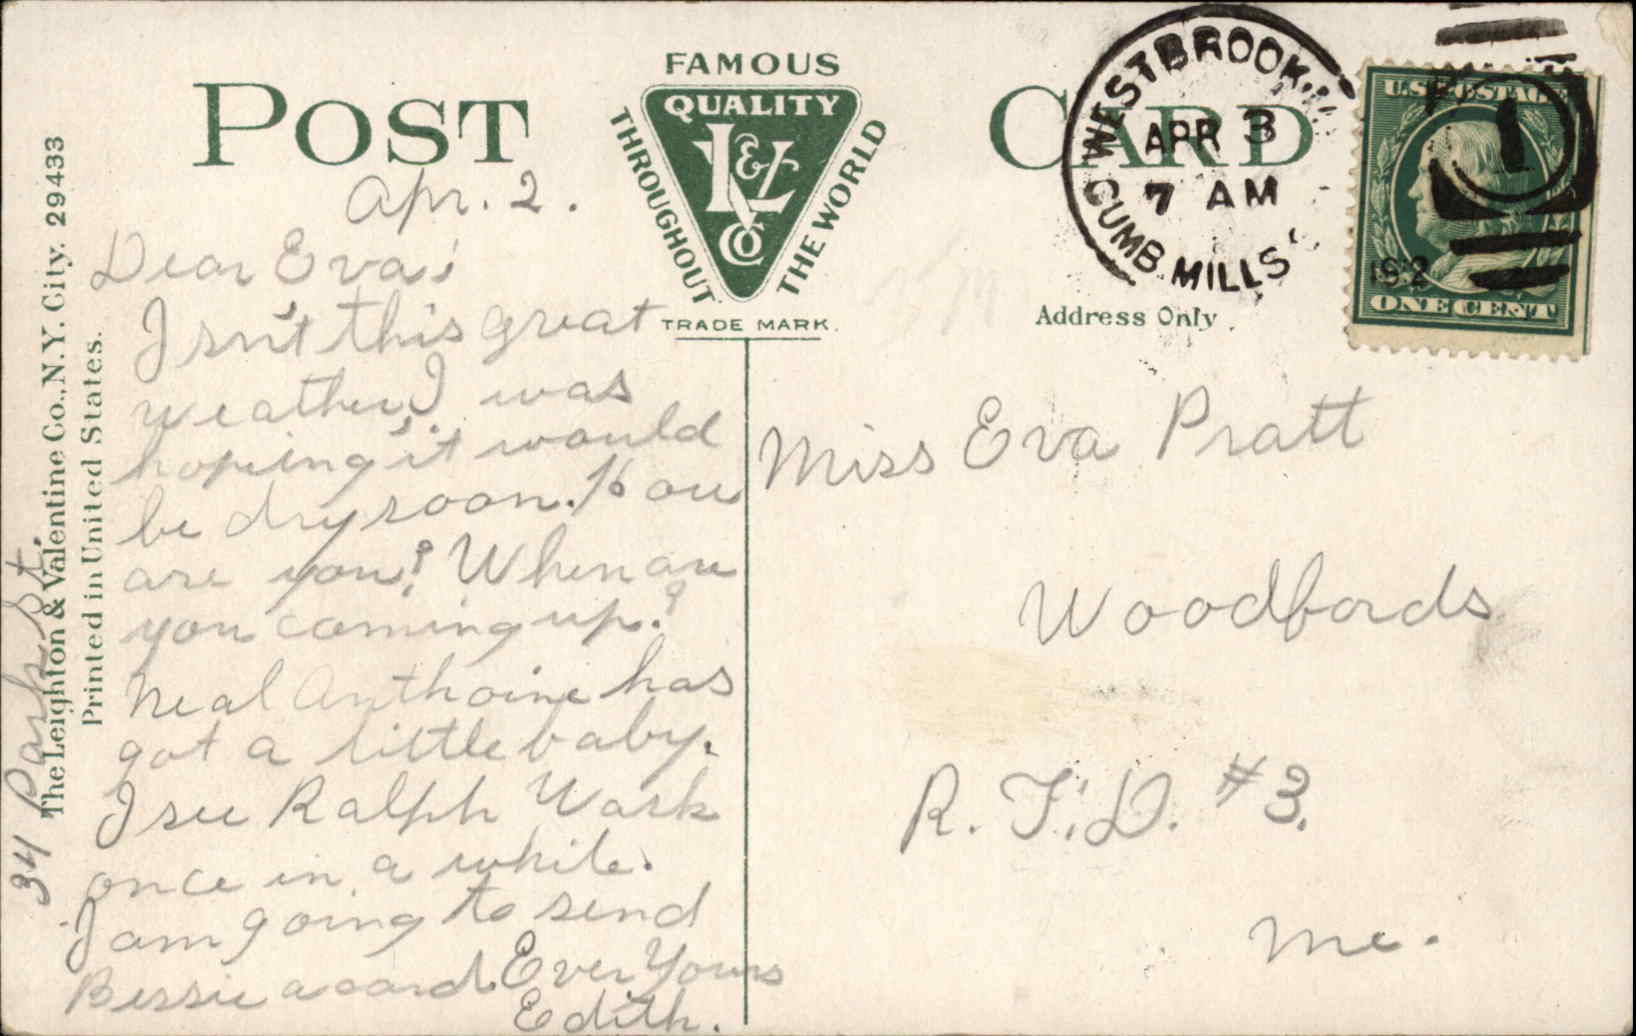 POST CARD
FAMOUS
QUALITY
L&V
CO
THROUGHOUT
THE WORLD
TRADE MARK.
WESTBROOK.
APR 3
7 AM
CUMB MILLS
U.S. POSTAGE
1
192
ONE CENT
Address Only.
The Leighton & Valentine Co., N.Y. City. 29433
Printed in United States.
34 Park St.
Apr. 2.
Dear Eva;
Isn't this great
weather, I was
hoping it would
be dry soon. How
are you? When are
you coming up.?
Neal Anthoine has
got a little baby.
I see Ralph Work
once in a while.
I am going to send
Bessie a card. Ever Yours
Edith.
Miss Eva Pratt
Woodfords
R. F. D. #3.
Me.